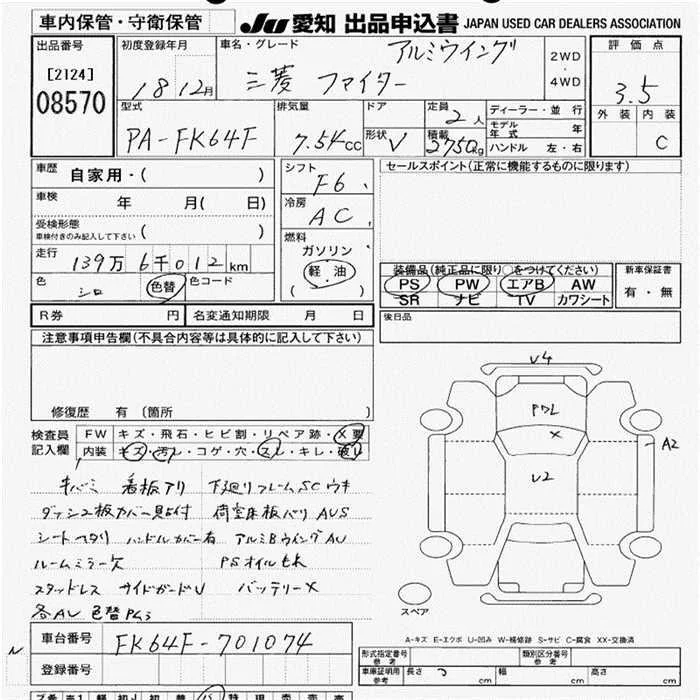 車内保管・守衛保管 JU 愛知 出品申込書 JAPAN USED CAR DEALERS ASSOCIATION
出品番号 [2124] 08570
初度登録年月 18 12月
車名・グレード 三菱 ファイター アルミウイング
2WD ・ 4WD
評価点 3.5
外装 内装 C
型式 PA-FK64F
排気量 7.54cc
ドア 形状 V
定員 2人
積載 2750kg
ディーラー・並行
モデル年式 年
ハンドル 左・右
車歴 自家用・( )
車検 年 月( 日)
受検形態 車検付きのみ記入して下さい ( )
走行 139万6千012km
色 シロ 色替 色コード
シフト F6
冷房 AC
燃料 ガソリン 軽油 ( )
セールスポイント(正常に機能するものに限ります)
装備品(純正品に限り○をつけてください)
PS PW エアB AW
SR ナビ TV カワシート
新車保証書 有・無
R券 円 名変通知期限 月 日
後日品
注意事項申告欄(不具合内容等は具体的に記入して下さい)
修復歴 有(箇所 )
検査員記入欄
FW キズ・飛石・ヒビ割・リペア跡・X要
内装 キズ・汚レ・コゲ・穴・スレ・キレ・破レ
キバミ 看板アリ 下廻りフレームSCウキ
ダッシュ板カバー見付 荷室床板バリ AUS
シートヘタリ ハンドルカバー有 アルミBウイングAU
ルームミラー欠 PSオイルもれ
スタッドレス サイドガードU バッテリーX
各AU 色替
V4
PフL
X
U2
A2
スペア
A-キズ E-エクボ U-凹み W-補修跡 S-サビ C-腐食 XX-交換済
N
車台番号 FK64F-701074
登録番号
形式指定番号 参考 類別区分番号 参考
車庫証明用 参考 長さ cm 幅 cm 高さ cm